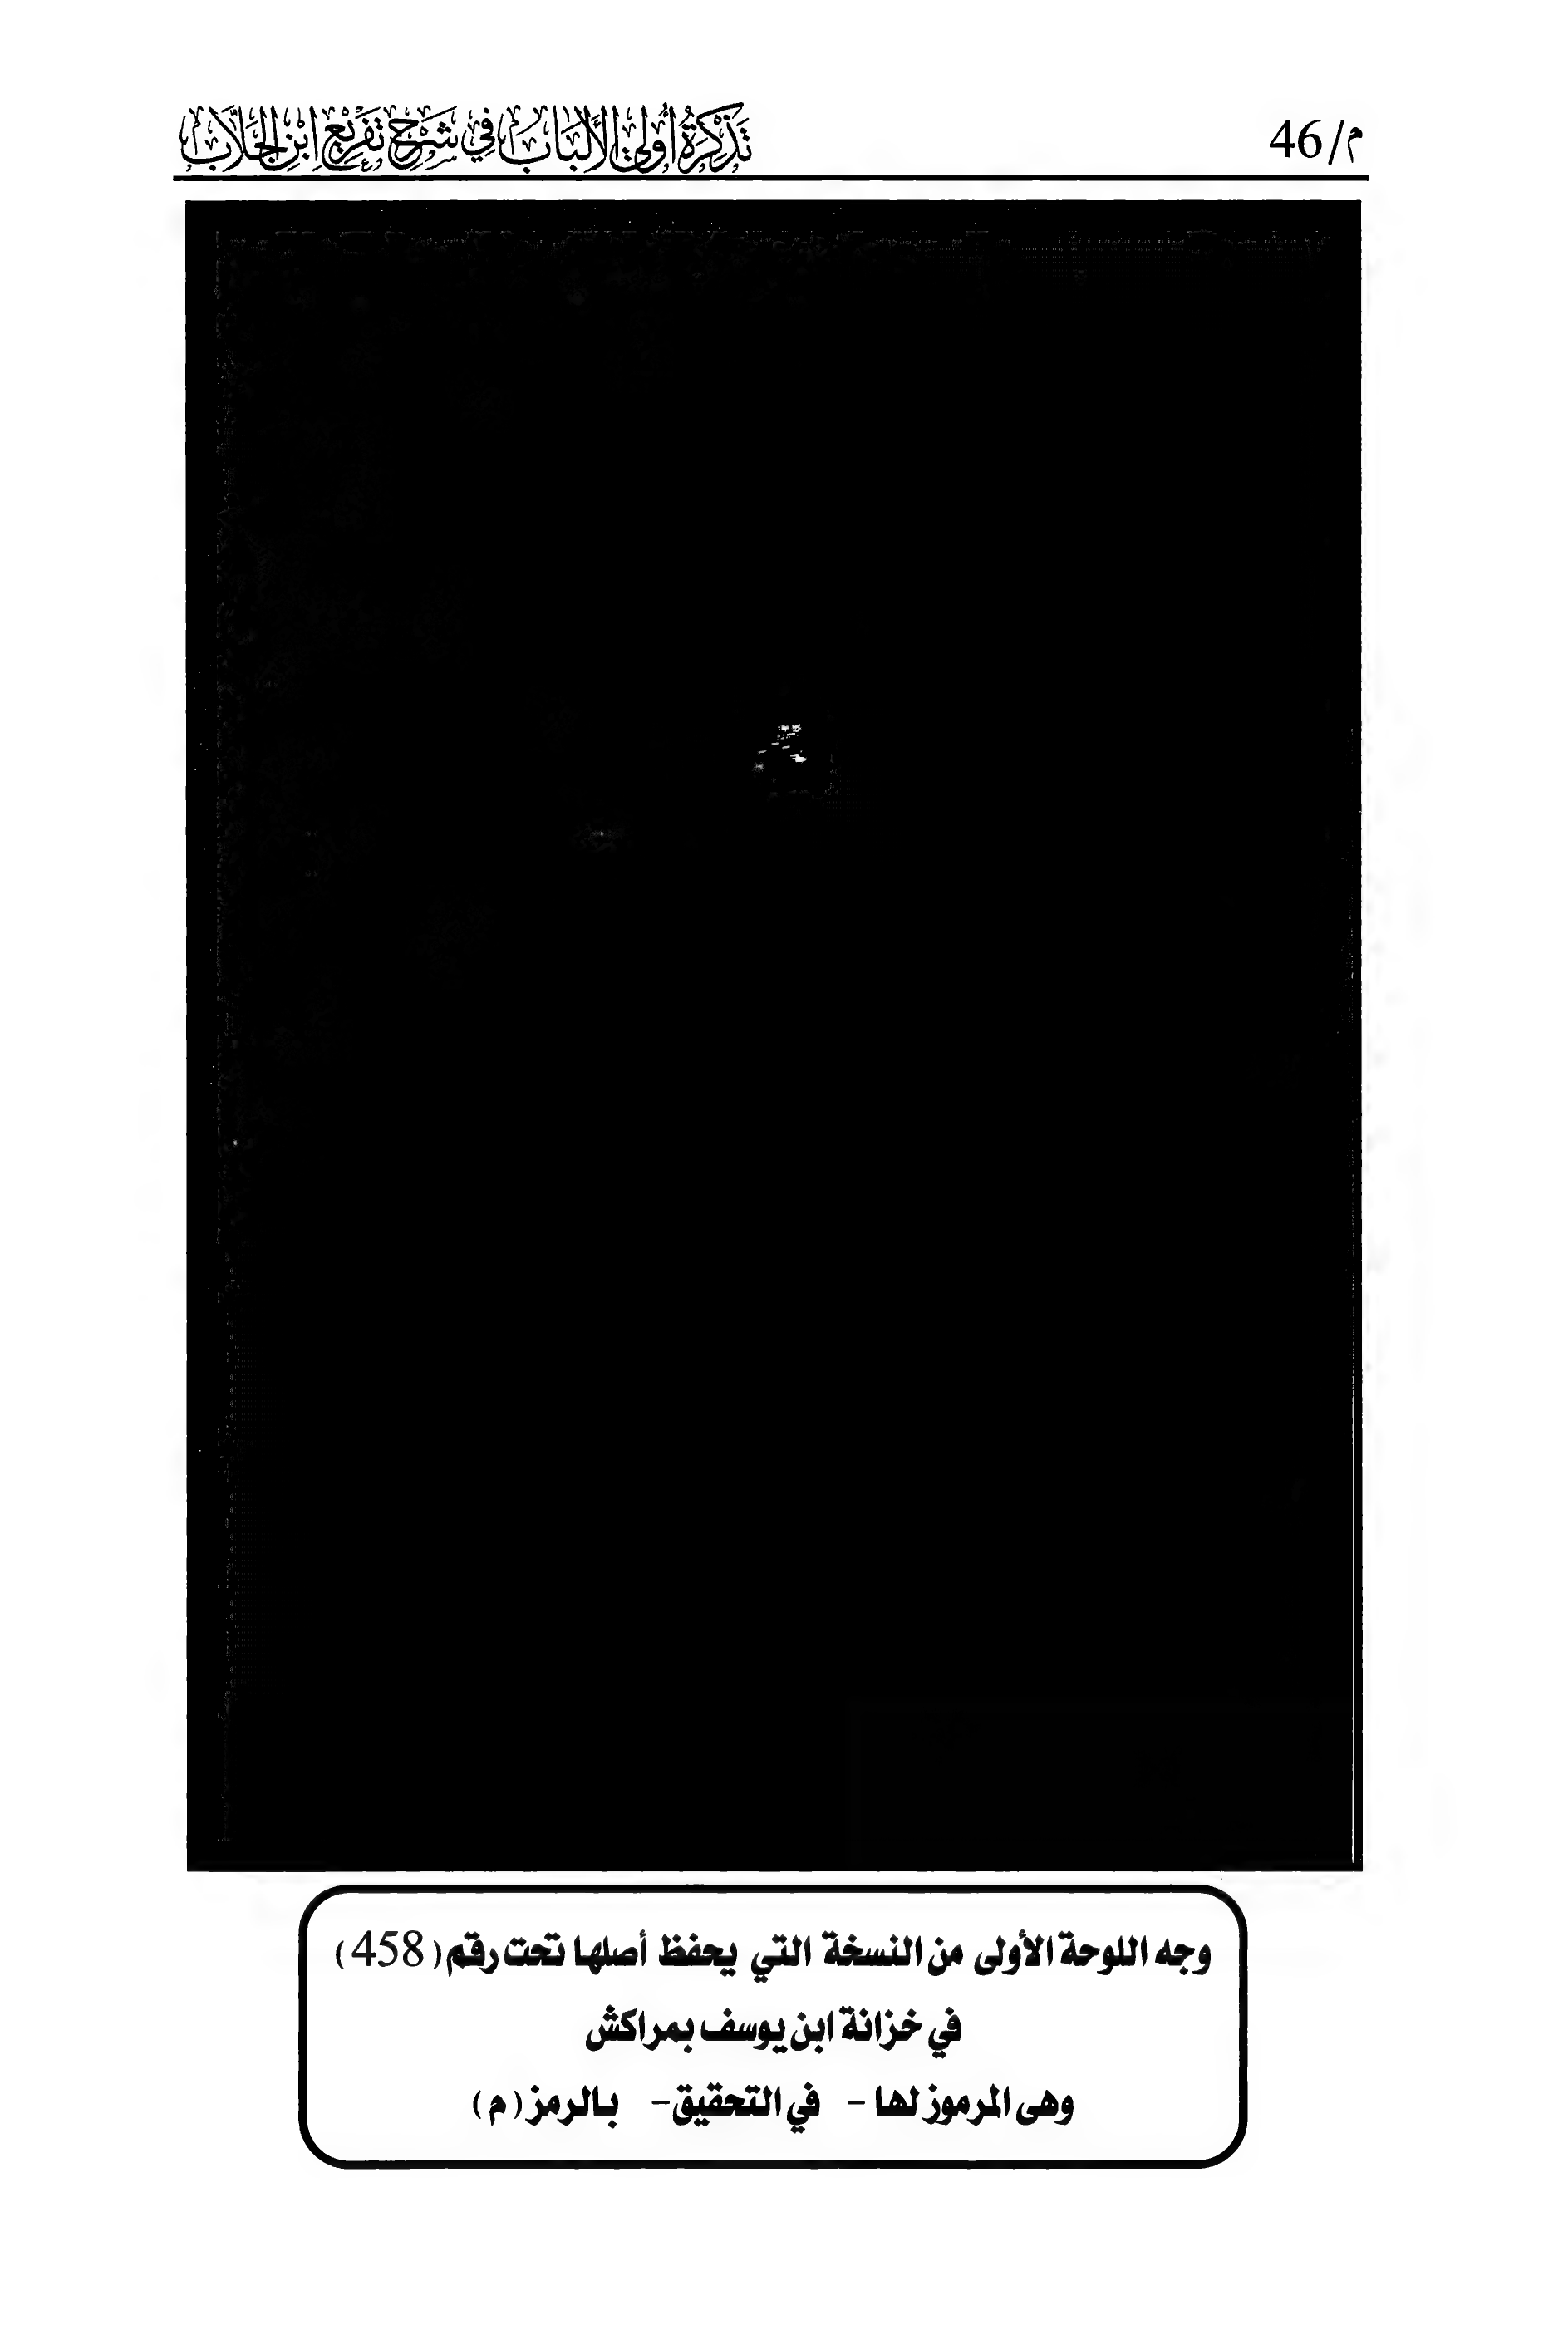 م/46
تَذْكِرَةُ أُولِي الأَلْبَابِ فِي شَرْحِ تَفْرِيعِ ابْنِ الجَلَّابِ
وجه اللوحة الأولى من النسخة التي يحفظ أصلها تحت رقم (458)
في خزانة ابن يوسف بمراكش
وهى المرموز لها - في التحقيق - بالرمز (م)